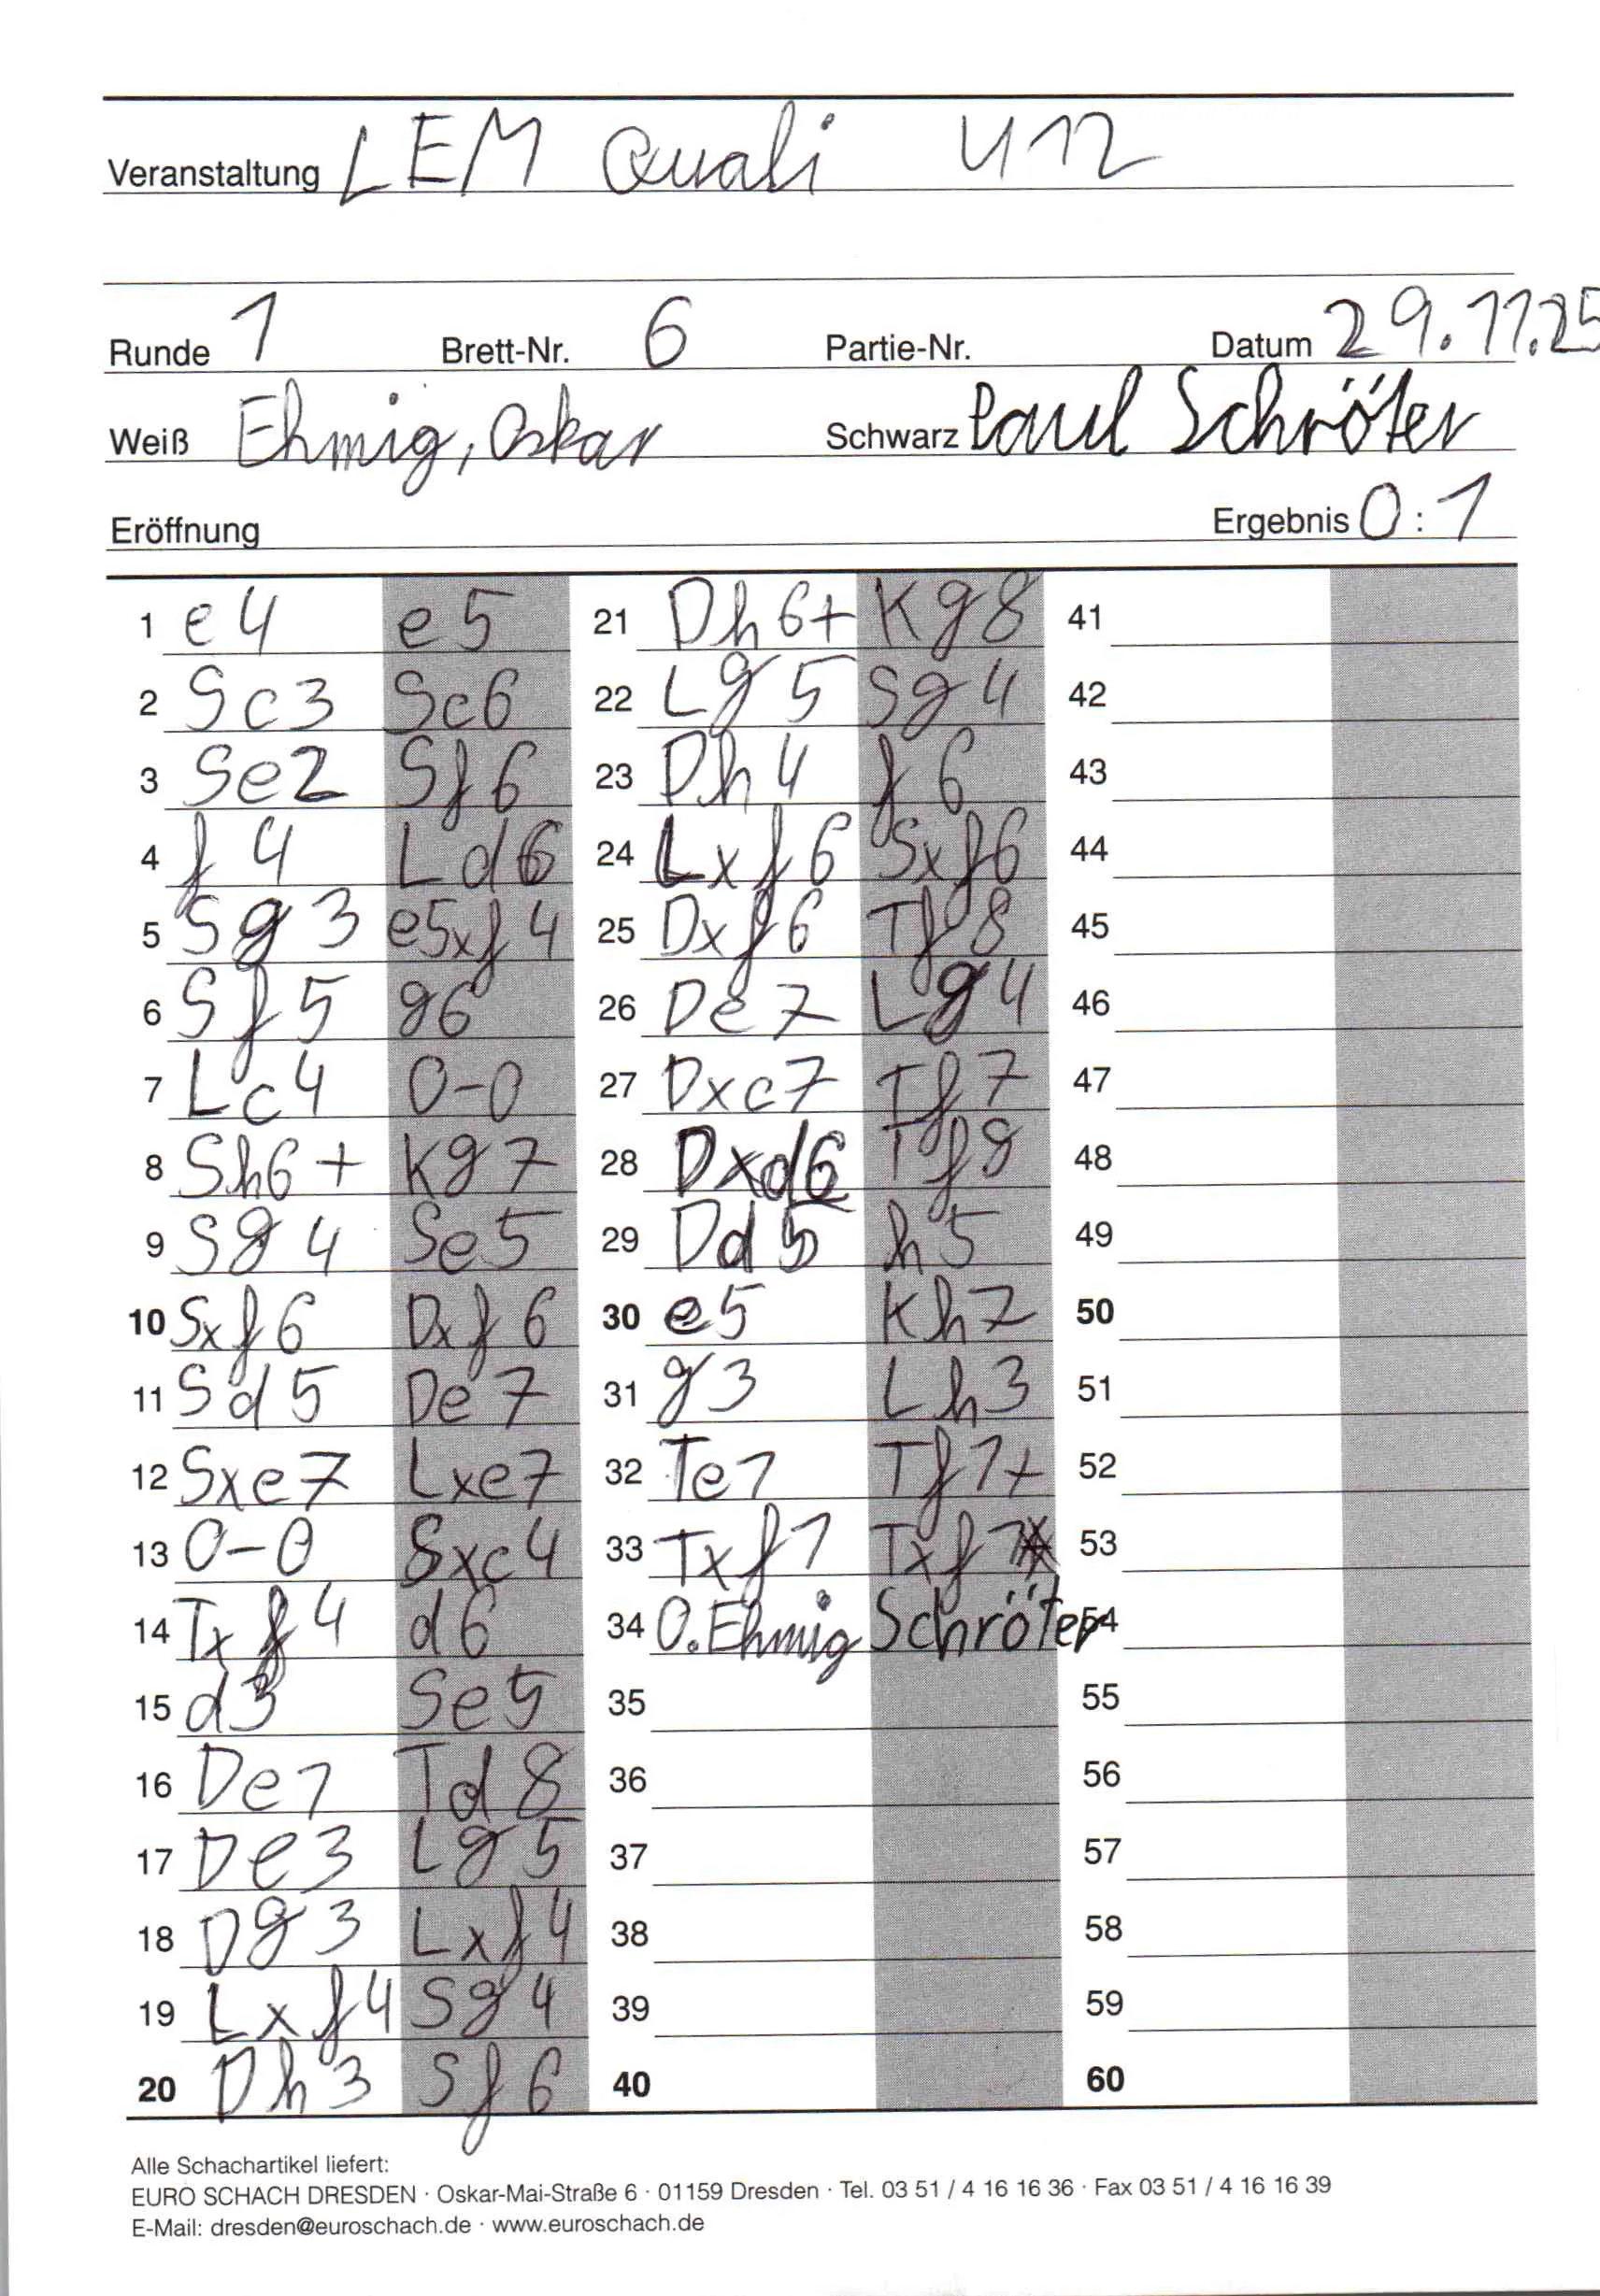 Veranstaltung LEM Quali U12
Runde 1 Brett-Nr. 6 Partie-Nr. Datum 29.11.25
Weiß Ehmig, Oskar Schwarz Paul Schröter
Eröffnung Ergebnis 0:1
1 e4 e5 21 Dh6+ Kg8 41
2 Sc3 Sc6 22 Lg5 Sg4 42
3 Se2 Sf6 23 Dh4 f6 43
4 f4 Ld6 24 Lxf6 Sxf6 44
5 Sg3 e5xf4 25 Dxf6 Tf8 45
6 Sf5 g6 26 De7 Lg4 46
7 Lc4 0-0 27 Dxc7 Tf7 47
8 Sh6+ Kg7 28 Dxd6 Tf8 48
9 Sg4 Se5 29 Dd5 h5 49
10 Sxf6 Dxf6 30 e5 Kh7 50
11 Sd5 De7 31 g3 Lh3 51
12 Sxe7 Lxe7 32 Te1 Tf1+ 52
13 0-0 Sxc4 33 Txf1 Txf1# 53
14 Txf4 d6 34 O.Ehmig Schröter 54
15 d3 Se5 35 55
16 De1 Td8 36 56
17 De3 Lg5 37 57
18 Dg3 Lxf4 38 58
19 Lxf4 Sg4 39 59
20 Dh3 Sf6 40 60
Alle Schachartikel liefert:
EURO SCHACH DRESDEN · Oskar-Mai-Straße 6 · 01159 Dresden · Tel. 03 51 / 4 16 16 36 · Fax 03 51 / 4 16 16 39
E-Mail: dresden@euroschach.de · www.euroschach.de